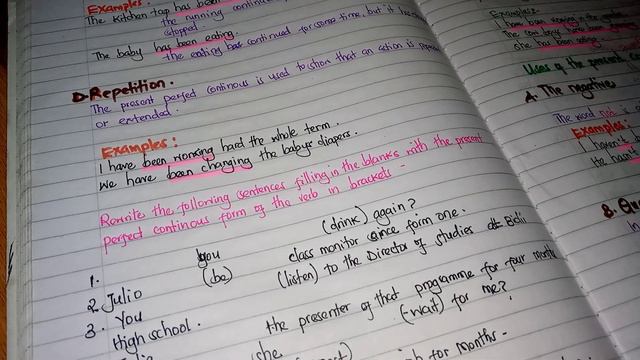 Examples.
The kitchen tap has been
the running
stopped.
The baby has been eating.
the eating has continued for some time, but it
D. Repetition.
The present perfect continous is used to show that an action is
or extended.
Examples:
I have been working hard the whole term.
We have been changing the babys diapers.
Rewrite the following sentences filling in the blanks with the present
perfect continous form of the verb in brackets -
1. you (drink) again?
2. Julio (be) class monitor since form one.
3. You (listen) to the Director of studies at
High school.
the presenter of that programme for four
she (wait) for me?
for months -
Examples:
she has been
Uses of the present
A. The negative
The word not is
Examples:
I haven't
He hasn't
B.
In